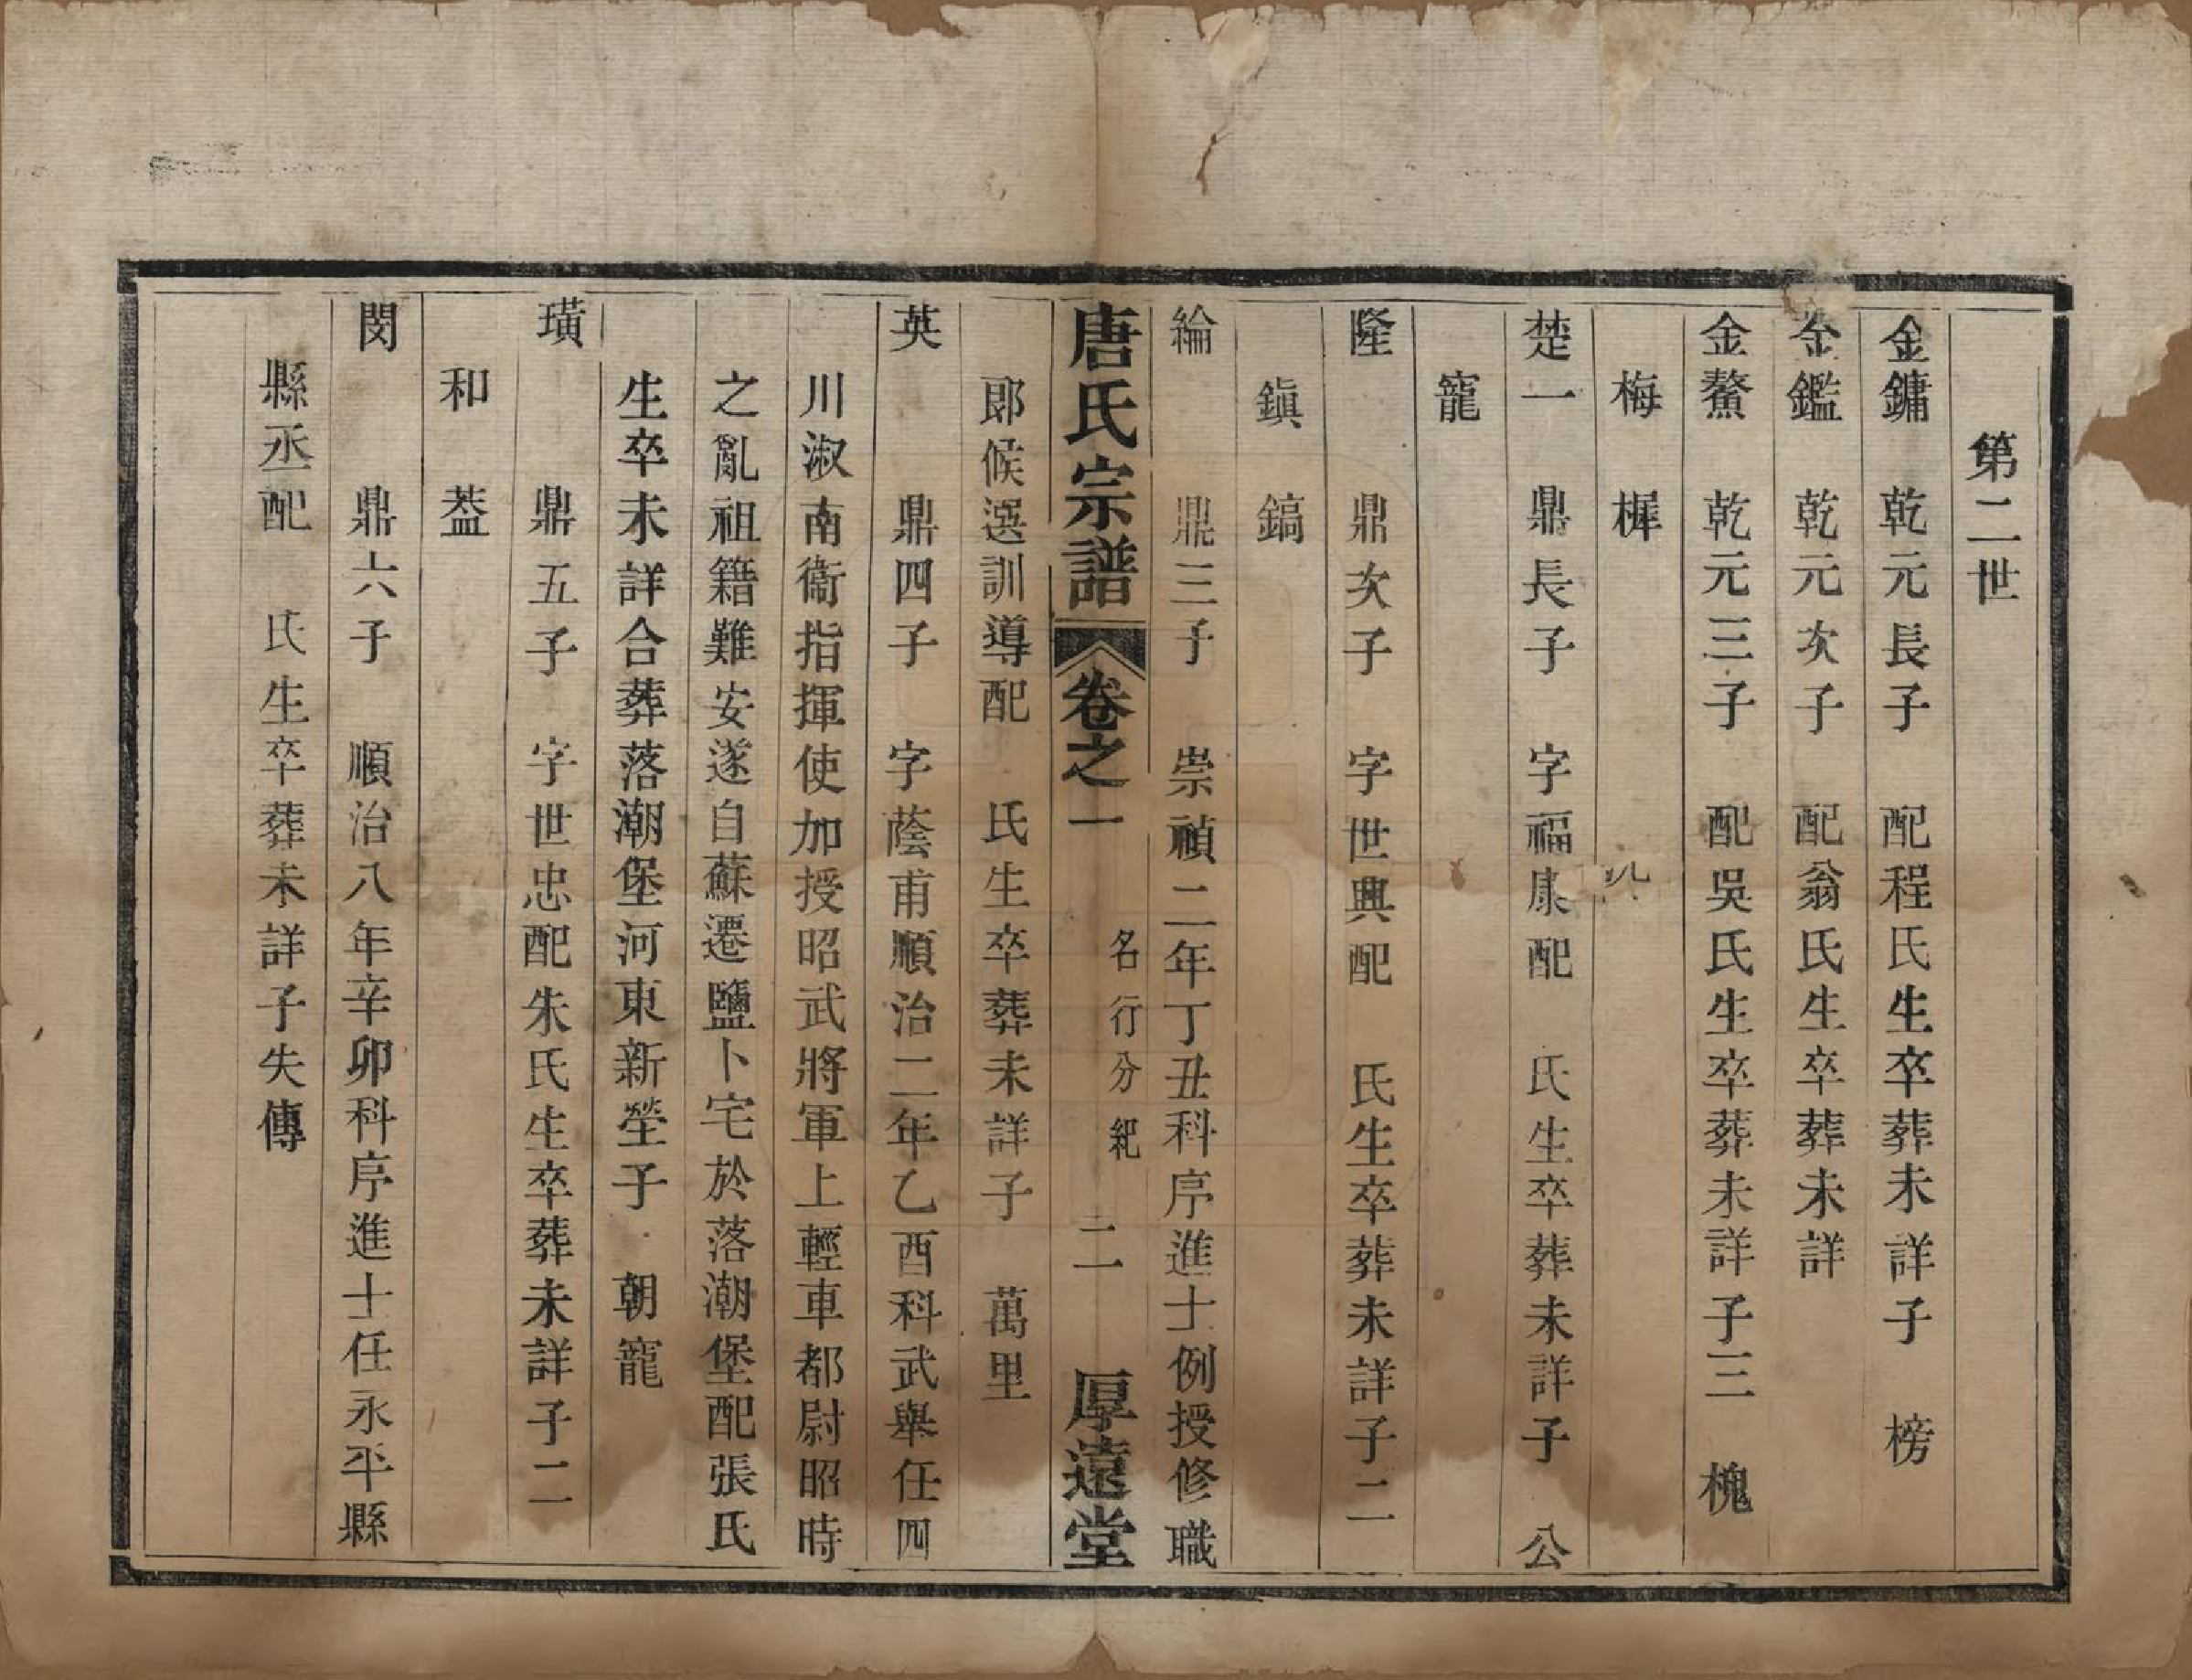 第二世
金鏞 乾元長子 配程氏生卒葬未詳子 榜
金鑑 乾元次子 配翁氏生卒葬未詳
金鰲 乾元三子 配吳氏生卒葬未詳子三 槐
梅 樨
楚一 鼎長子 字福康配 氏生卒葬未詳子 公
寵
隆 鼎次子 字世興配 氏生卒葬未詳子二
鎭 鎬
綸 鼎三子 崇禎二年丁丑科序進士例授修職
唐氏宗譜 卷之一 名行分紀 二 厚遠堂
郎候選訓導配 氏生卒葬未詳子 萬里
英 鼎四子 字蔭甫順治二年乙酉科武舉任四
川淑南衞指揮使加授昭武將軍上輕車都尉昭時
之亂祖籍難安遂自蘇遷鹽卜宅於落潮堡配張氏
生卒未詳合葬落潮堡河東新塋子 朝寵
璜 鼎五子 字世忠配朱氏生卒葬未詳子二
和 葢
閔 鼎六子 順治八年辛卯科序進士任永平縣
縣丞配 氏生卒葬未詳子失傳